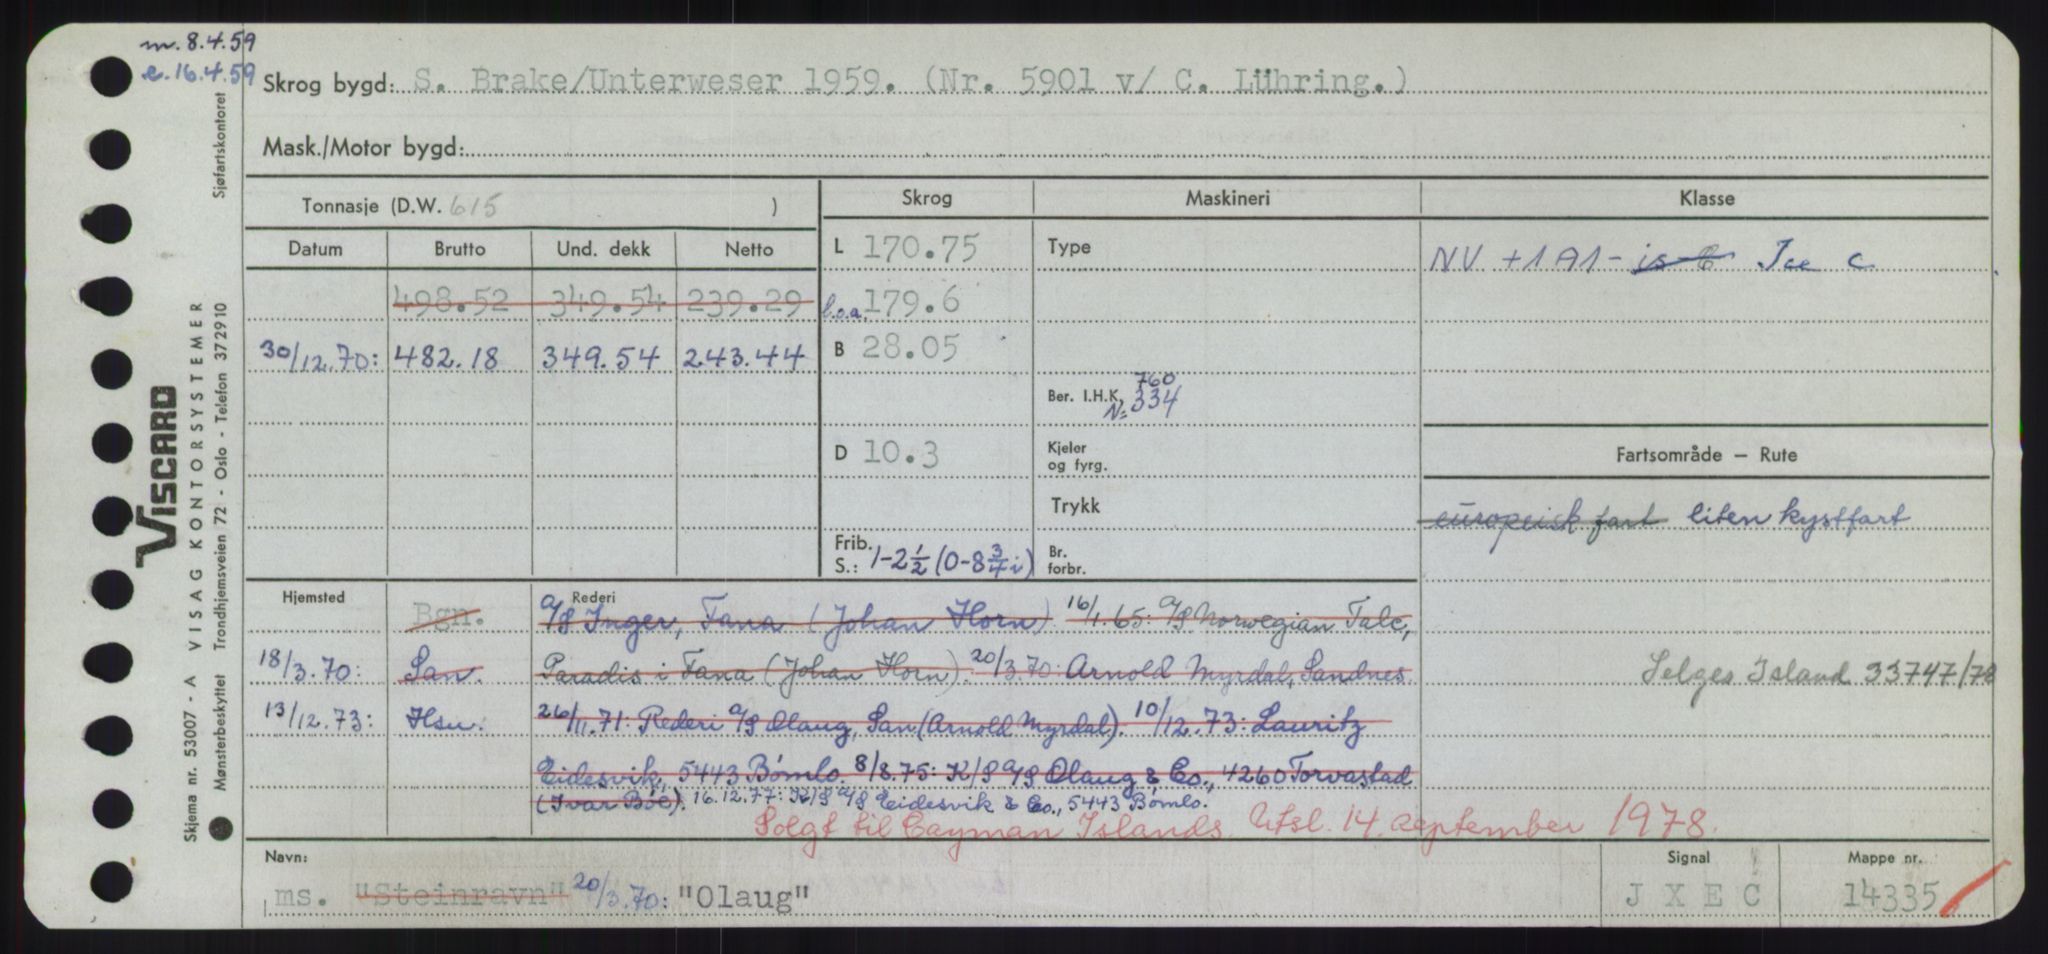 m. 8.4.59
e. 16.4.59
Skrog bygd: S. Brake/Unterweser 1959. (Nr. 5901 v/ C. Lühring.)
Mask./Motor bygd:
Tonnasje (D.W. 615 )
Datum Brutto Und. dekk Netto
498.52 349.54 239.29
30/12.70: 482.18 349.54 243.44
Skrog
L 170.75
l.o.a. 179.6
B 28.05
D 10.3
Frib. S.: 1-2½ (0-8¾ i)
Maskineri
Type
760
Ber. I.H.K. N= 334
Kjeler og fyrg.
Trykk
Br. forbr.
Klasse
NV +1A1- is C Ice C
Fartsområde – Rute
europeisk fart liten kystfart
Selges Island 33747/78
Hjemsted Rederi
Bgn. A/S Inger, Fana (Johan Horn) 16/1.65: A/S Norwegian Talc,
18/3.70: San. Paradis i Fana (Johan Horn). 20/3.70: Arnold Myrdal, Sandnes
13/12.73: Hsu. 26/11.71: Rederi A/S Olaug, San (Arnold Myrdal). 10/12.73: Lauritz
Eidesvik, 5443 Bømlo. 8/8.75: K/S A/S Olaug & Co., 4260 Torvastad
(Ivar Bøe). 16.12.77: K/S A/S Eidesvik & Co., 5443 Bømlo.
Solgt til Cayman Islands. Utsl. 14. september 1978.
Navn:
ms. "Steinravn" 20/3.70: "Olaug"
Signal
J X E C
Mappe nr.
14335
Sjøfartskontoret
VISCARD
VISAG KONTORSYSTEMER
Trondhjemsveien 72 - Oslo - Telefon 372910
Skjema nr. 53007 - A
Mønsterbeskyttet